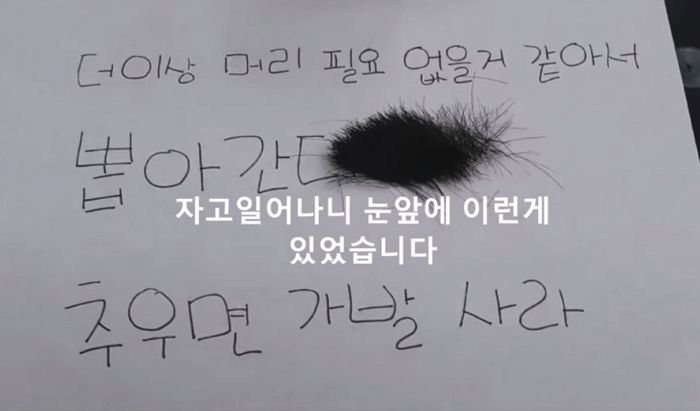 더이상 머리 필요 없을거 같아서
뽑아간다
자고일어나니 눈앞에 이런게
있었습니다
추우면 가발 사라